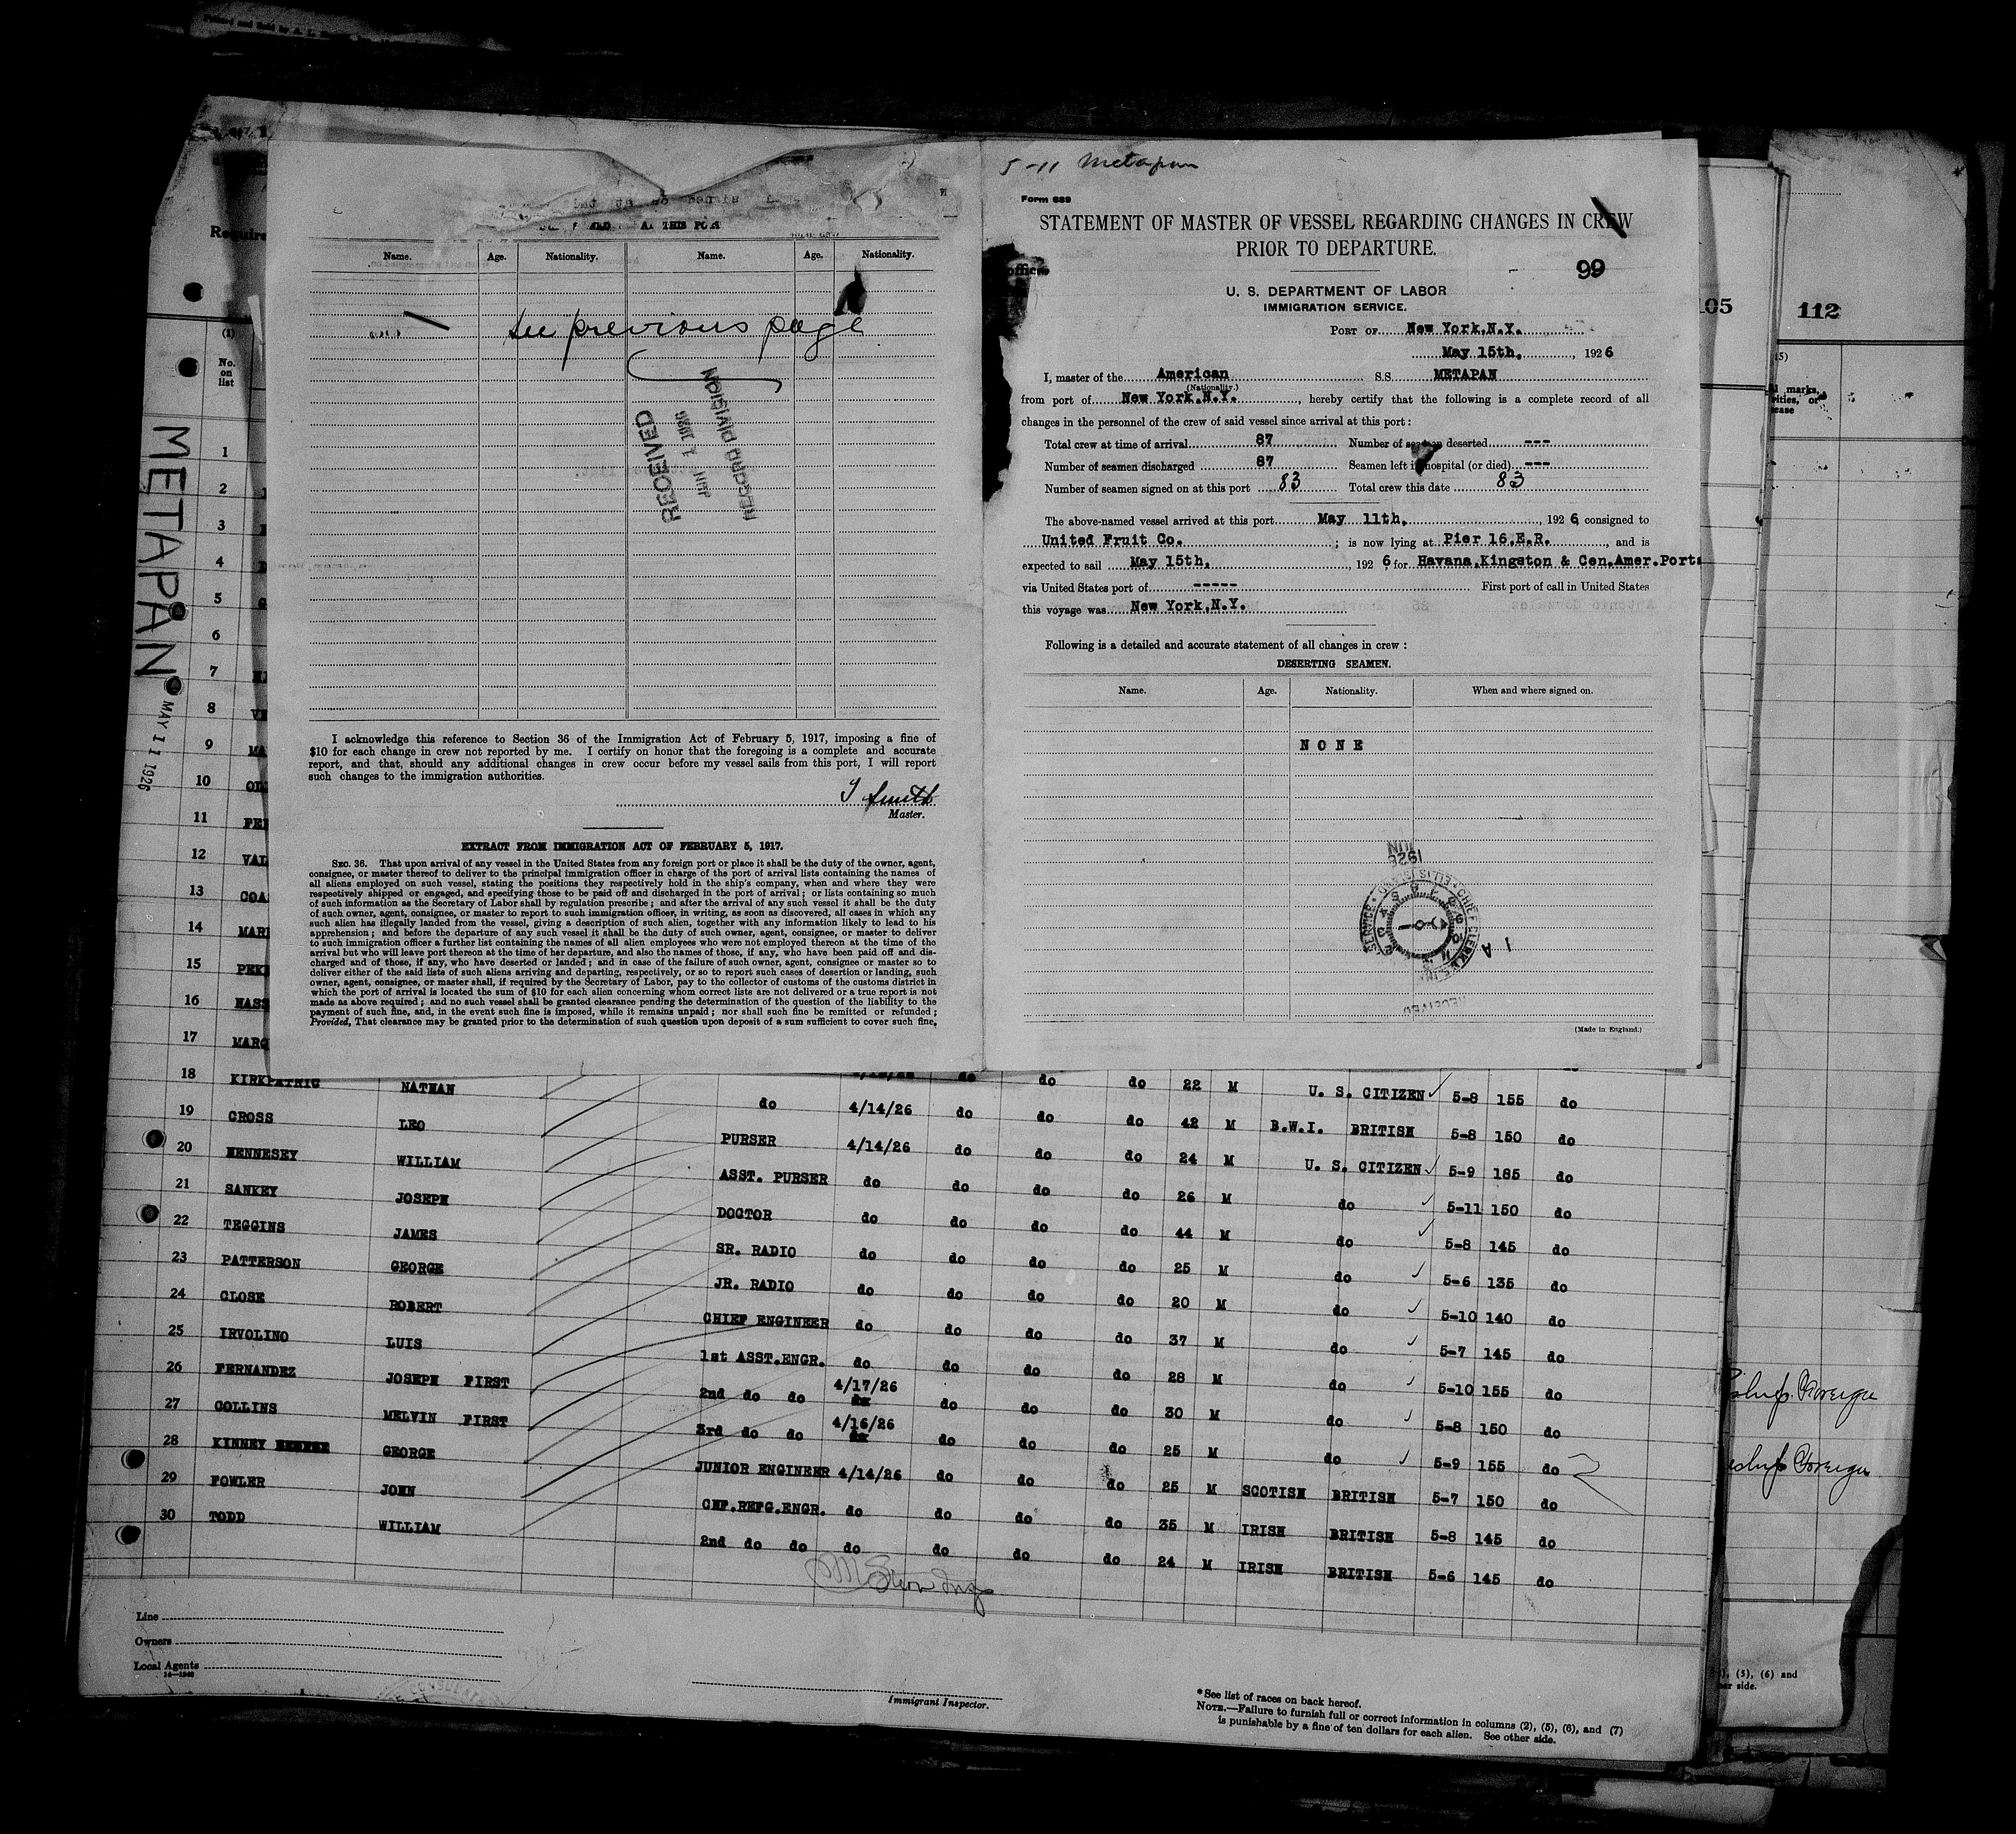 5-11 Metapan
Form 689
STATEMENT OF MASTER OF VESSEL REGARDING CHANGES IN CREW
PRIOR TO DEPARTURE.
99
U. S. DEPARTMENT OF LABOR
IMMIGRATION SERVICE.
PORT OF New York, N.Y.
May 15th, 1926
I, master of the American S.S. METAPAN
(Nationality.)
from port of New York, N.Y., hereby certify that the following is a complete record of all
changes in the personnel of the crew of said vessel since arrival at this port:
Total crew at time of arrival 87 Number of seamen deserted ---
Number of seamen discharged 87 Seamen left in hospital (or died) ---
Number of seamen signed on at this port 83 Total crew this date 83
The above-named vessel arrived at this port May 11th, 1926, consigned to
United Fruit Co. ; is now lying at Pier 16.E.R., and is
expected to sail May 15th, 1926 for Havana.Kingston & Cen.Amer.Ports
via United States port of ----- First port of call in United States
this voyage was New York, N.Y.
Following is a detailed and accurate statement of all changes in crew :
DESERTING SEAMEN.
Name. Age. Nationality. When and where signed on.
NONE
1926
RECEIVED
(Made in England.)
AT THIS PORT
Name. Age. Nationality. Name. Age. Nationality.
See previous page
RECEIVED
RECORD DIVISION
I acknowledge this reference to Section 36 of the Immigration Act of February 5, 1917, imposing a fine of
$10 for each change in crew not reported by me. I certify on honor that the foregoing is a complete and accurate
report, and that, should any additional changes in crew occur before my vessel sails from this port, I will report
such changes to the immigration authorities.
Smith
Master.
EXTRACT FROM IMMIGRATION ACT OF FEBRUARY 5, 1917.
SEC. 36. That upon arrival of any vessel in the United States from any foreign port or place it shall be the duty of the owner, agent,
consignee, or master thereof to deliver to the principal immigration officer in charge of the port of arrival lists containing the names of
all aliens employed on such vessel, stating the positions they respectively hold in the ship's company, when and where they were
respectively shipped or engaged, and specifying those to be paid off and discharged in the port of arrival; or lists containing so much
of such information as the Secretary of Labor shall by regulation prescribe; and after the arrival of any such vessel it shall be the duty
of such owner, agent, consignee, or master to report to such immigration officer, in writing, as soon as discovered, all cases in which any
such alien has illegally landed from the vessel, giving a description of such alien, together with any information likely to lead to his
apprehension; and before the departure of any such vessel it shall be the duty of such owner, agent, consignee, or master to deliver
to such immigration officer a further list containing the names of all alien employees who were not employed thereon at the time of the
arrival but who will leave port thereon at the time of her departure, and also the names of those, if any, who have been paid off and dis-
charged and of those, if any, who have deserted or landed; and in case of the failure of such owner, agent, consignee or master so to
deliver either of the said lists of such aliens arriving and departing, respectively, or so to report such cases of desertion or landing, such
owner, agent, consignee, or master shall, if required by the Secretary of Labor, pay to the collector of customs of the customs district in
which the port of arrival is located the sum of $10 for each alien concerning whom correct lists are not delivered or a true report is not
made as above required; and no such vessel shall be granted clearance pending the determination of the question of the liability to the
payment of such fine, and, in the event such fine is imposed, while it remains unpaid; nor shall such fine be remitted or refunded;
Provided, That clearance may be granted prior to the determination of such question upon deposit of a sum sufficient to cover such fine.
105
112
METAPAN
MAY 11 1926
No. on list
1
2
3
4
5
6
7
8
9
10
11
12
13
14
15
16
17
18 KIRKPATRIC NATHAN do 22 M U. S. CITIZEN 5-8 155 do
19 CROSS LEO do 4/14/26 do do do 42 M B.W.I. BRITISH 5-8 150 do
20 HENNESEY WILLIAM PURSER 4/14/26 do do do 24 M U. S. CITIZEN 5-9 185 do
21 SANKEY JOSEPH ASST. PURSER do do do do 26 M do 5-11 150 do
22 TEGGINS JAMES DOCTOR do do do do 44 M do 5-8 145 do
23 PATTERSON GEORGE SR. RADIO do do do do 25 M do 5-6 135 do
24 CLOSE ROBERT JR. RADIO do do do do 20 M do 5-10 140 do
25 IRVOLINO LUIS CHIEF ENGINEER do do do do 37 M do 5-7 145 do
26 FERNANDEZ JOSEPH FIRST 1st ASST.ENGR. do do do do 28 M do 5-10 155 do
27 COLLINS MELVIN FIRST 2nd do do 4/17/26 do do do 30 M do 5-8 150 do
28 KINNEY GEORGE 3rd do do 4/16/26 do do do 25 M do 5-9 155 do
29 FOWLER JOHN JUNIOR ENGINEER 4/14/26 do do do 25 M SCOTISH BRITISH 5-7 150 do
30 TODD WILLIAM CHF.REFG.ENGR. do do do do 35 M IRISH BRITISH 5-8 145 do
2nd do do do do do do 24 M IRISH BRITISH 5-6 145 do
Line
Owners
Local Agents
Immigrant Inspector.
*See list of races on back hereof.
NOTE.—Failure to furnish full or correct information in columns (2), (5), (6), and (7)
is punishable by a fine of ten dollars for each alien. See other side.
(5), (6) and
side.